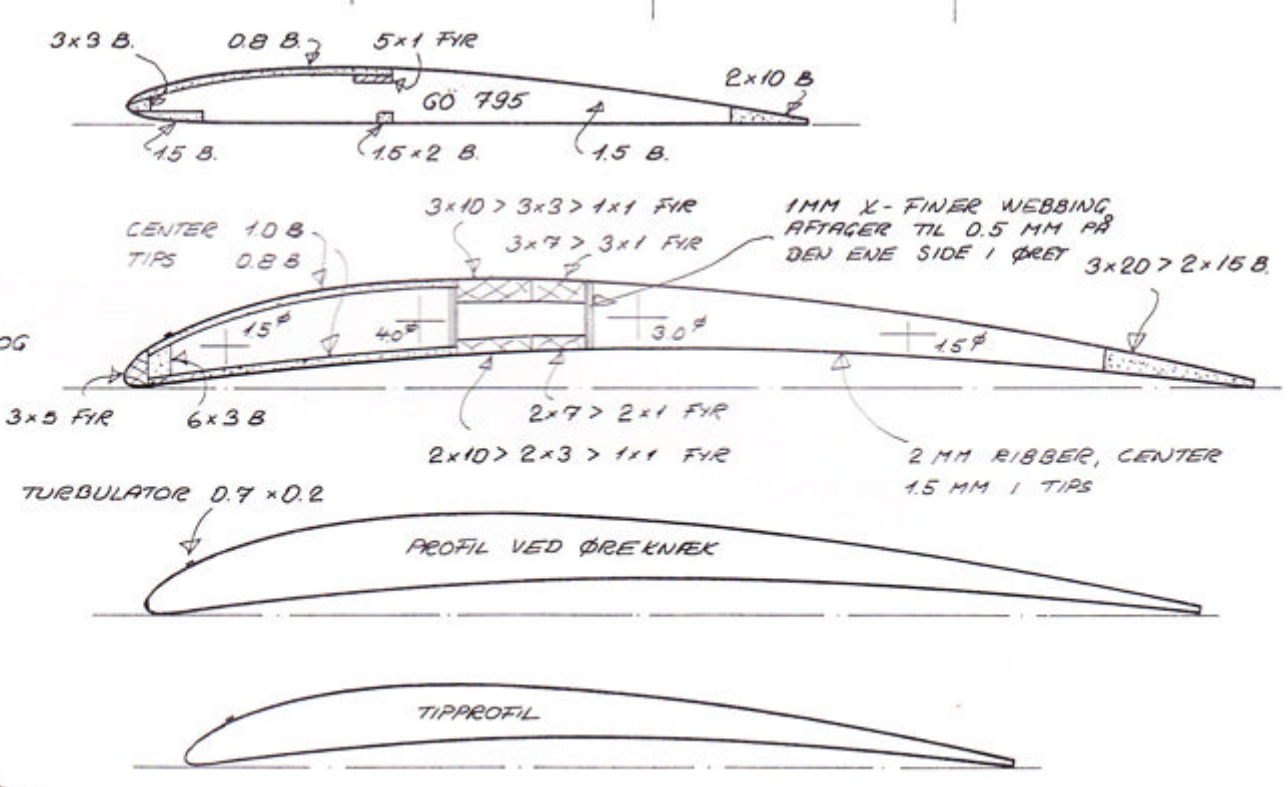 3×3 B.
0.8 B.
5×1 FYR
2×10 B
GÖ 795
1.5 B.
1.5×2 B.
1.5 B.
3×10 > 3×3 > 1×1 FYR
3×7 > 3×1 FYR
CENTER 1.0 B
TIPS 0.8 B
1MM X-FINER WEBBING
AFTAGER TIL 0.5 MM PÅ
DEN ENE SIDE I ØRET
3×20 > 2×15 B.
OG
1.5 ϕ
4.0 ϕ
3.0 ϕ
1.5 ϕ
3×5 FYR
6×3 B
2×7 > 2×1 FYR
2×10 > 2×3 > 1×1 FYR
2 MM RIBBER, CENTER
1.5 MM I TIPS
TURBULATOR 0.7 × 0.2
PROFIL VED ØREKNÆK
TIPPROFIL